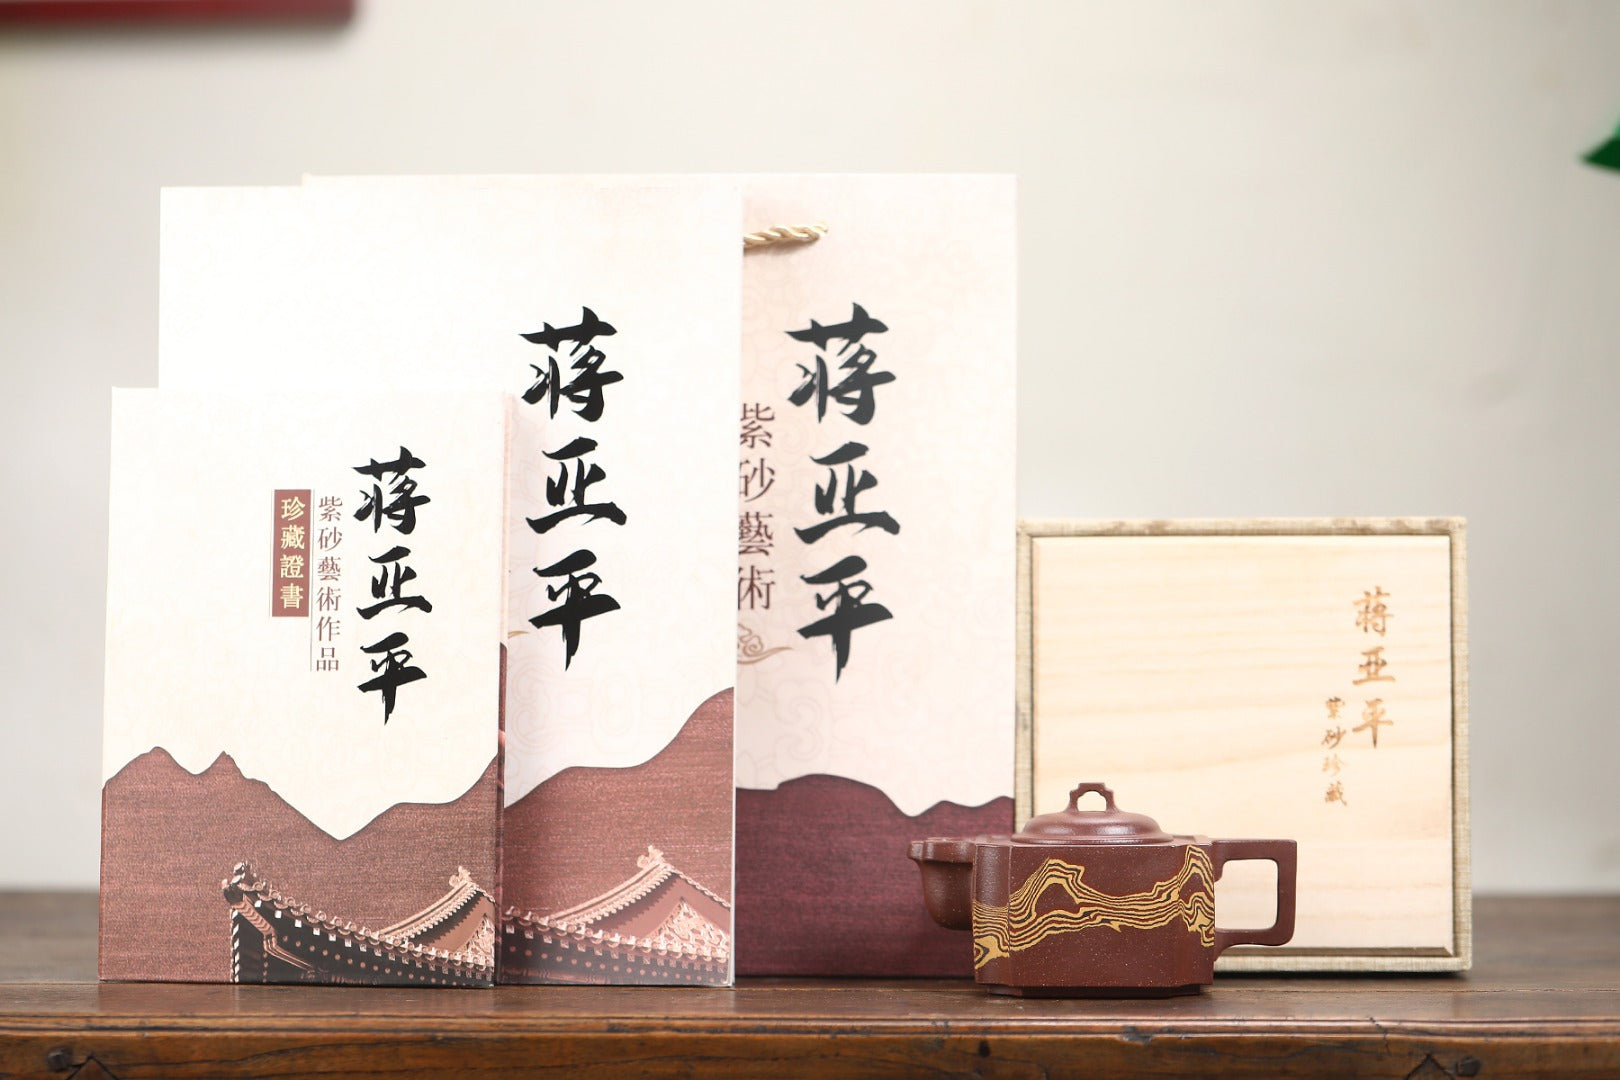 蒋亚平
紫砂藝術作品
珍藏證書
蒋亚平
蒋亚平
紫砂藝術
蒋亚平
紫砂珍藏